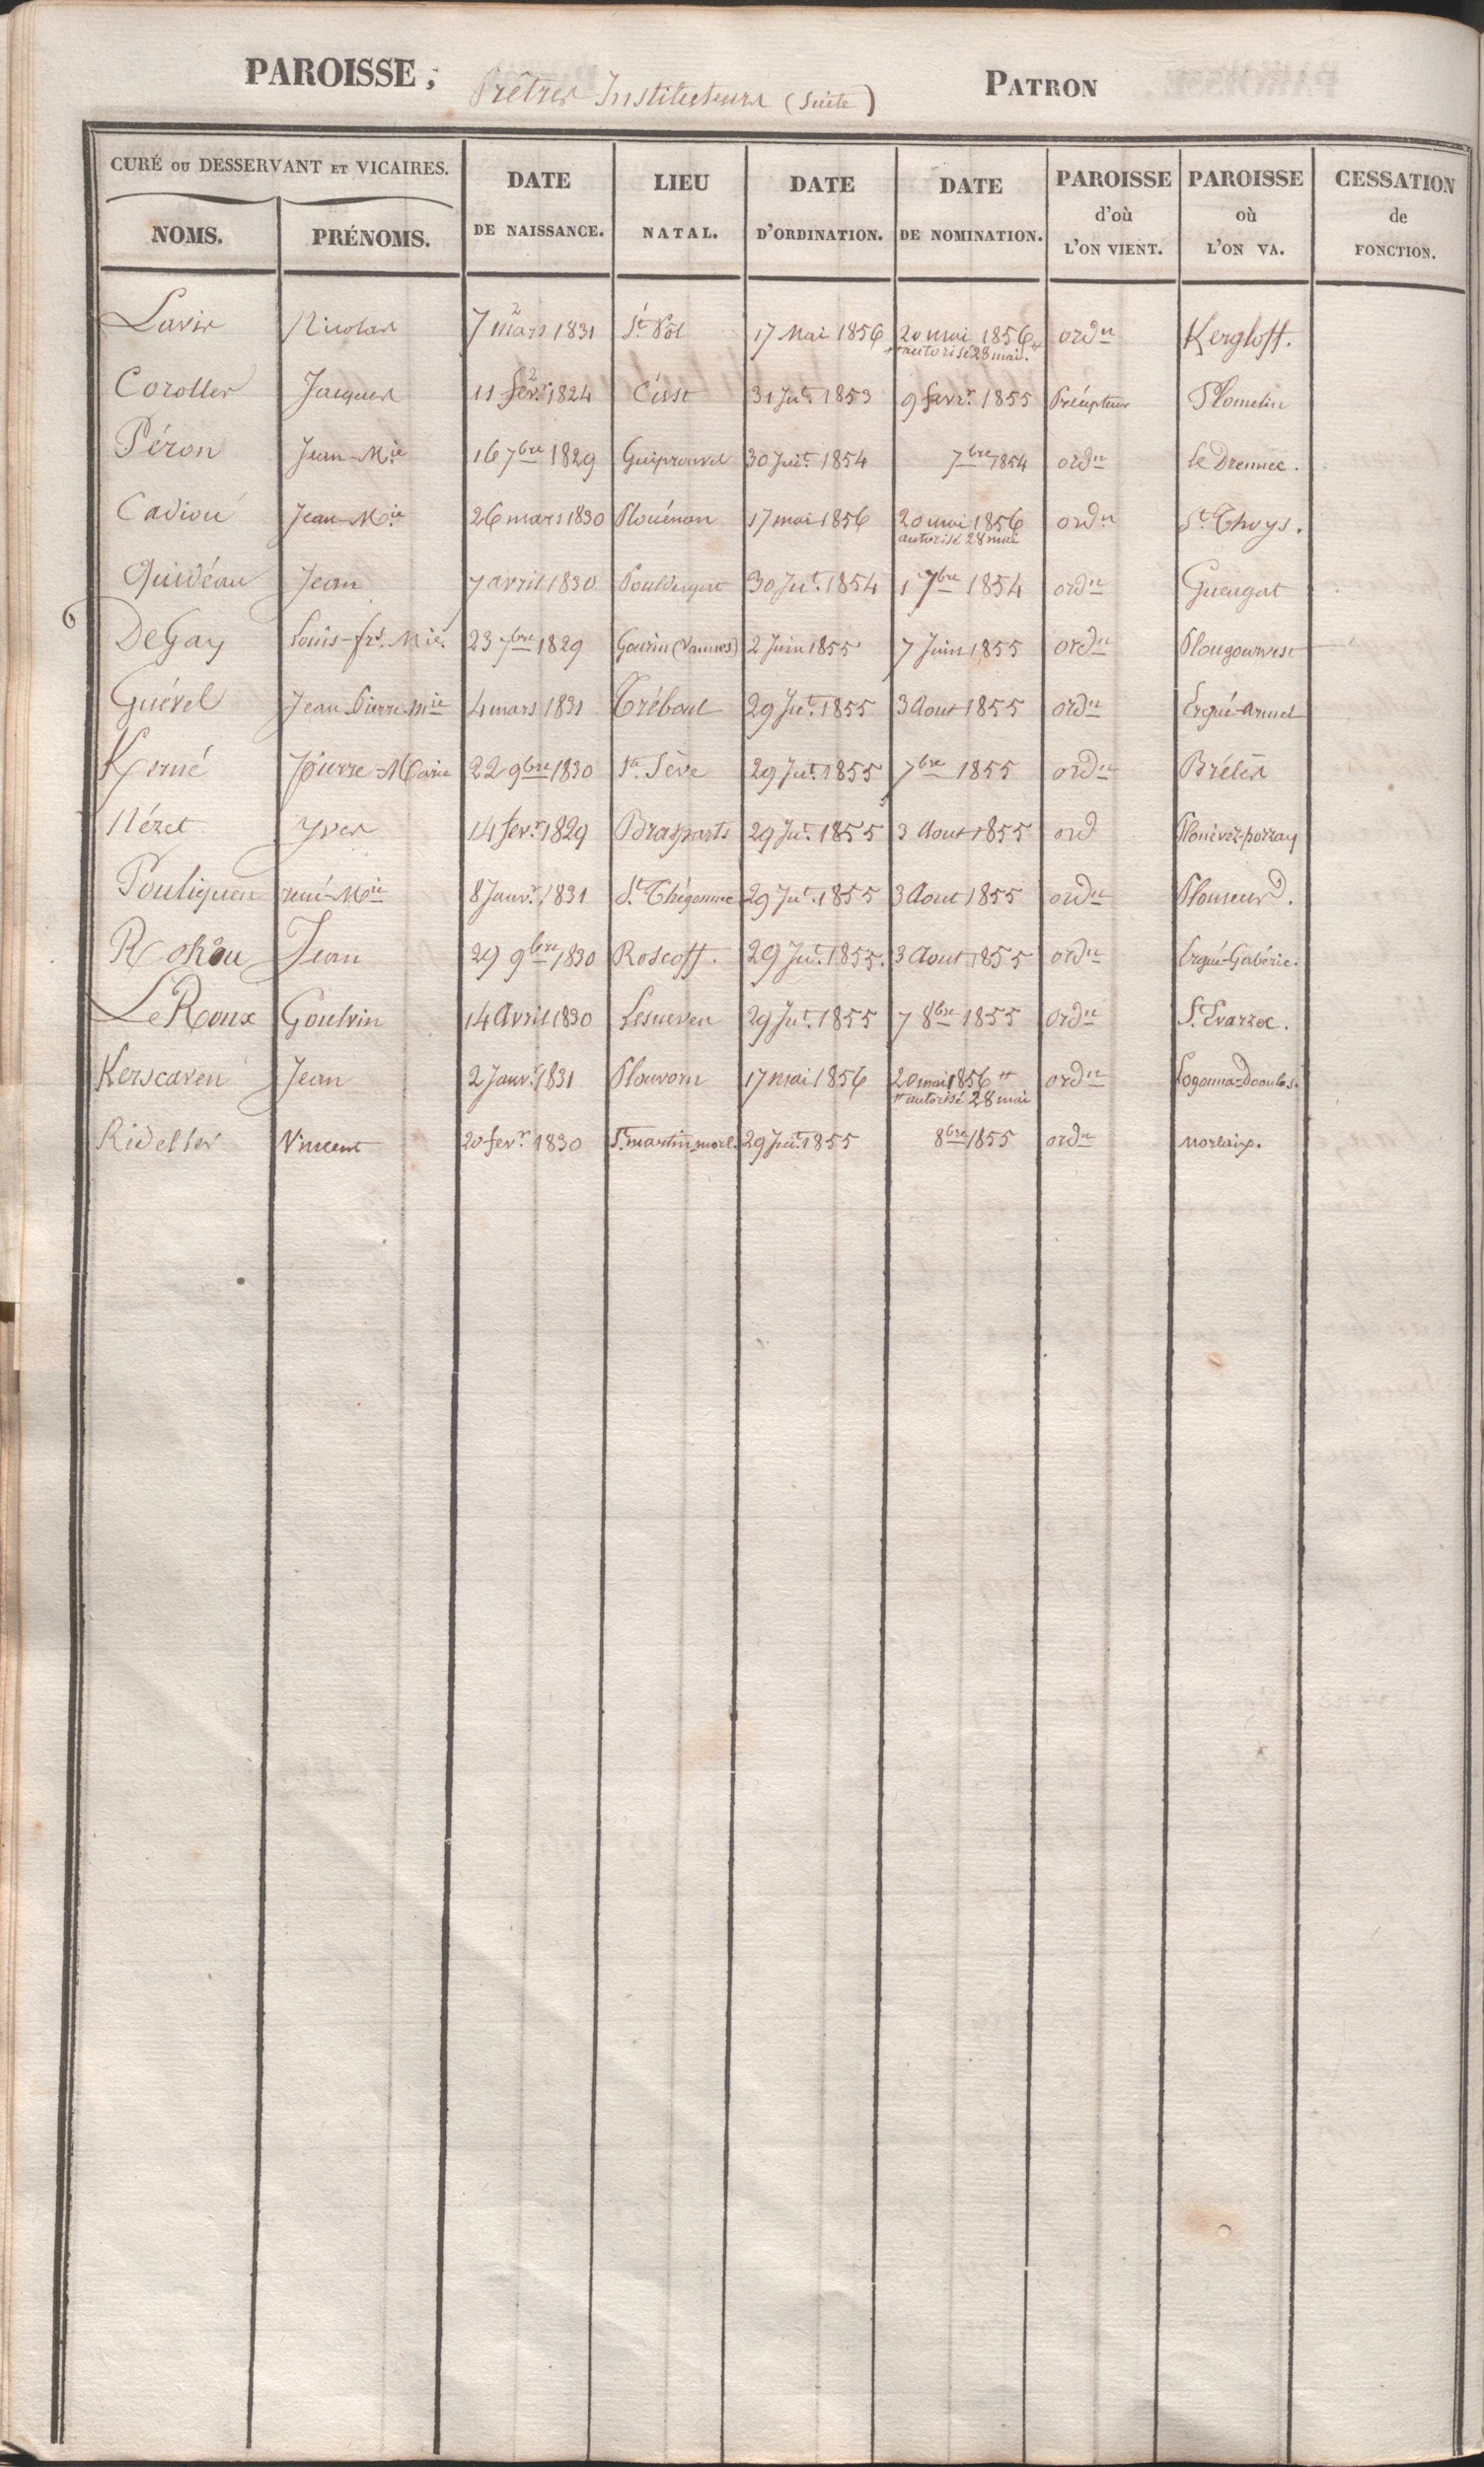 PAROISSE, Prêtres Instituteurs (suite) PATRON
CURÉ OU DESSERVANT ET VICAIRES.
NOMS. PRÉNOMS. DATE DE NAISSANCE. LIEU NATAL. DATE D'ORDINATION. DATE DE NOMINATION. PAROISSE d'où L'ON VIENT. PAROISSE où L'ON VA. CESSATION de FONCTION.
Nicolas 7 mars 1831 St Pol 17 Mai 1856 20 mai 1856 ordn Kergloff.
autorisé 28 mai.
Coroller Jacques 11 fevr 1824 31 Jut 1853 9 fevr. 1855 Précepteur Plomelin
Péron Jean-Mie 16 7bre 1829 Guipronvel 30 Juit 1854 7bre 1854 ordn le Drennec.
Cadiou Jean-Mie 26 mars 1830 Plouénan 17 mai 1856 20 mai 1856 ordn St Thoys.
autorisé 28 mai
Quideau Jean 7 avril 1830 Pouldergat 30 Jut 1854 1 7bre 1854 ordn Guengat
6 DeGay Louis-frs. Mie. 23 7bre 1829 Gourin (Vannes) 2 Juin 1855 7 Juin 1855 ordn Plougourvest
Guével Jean Pierre Mie 4 mars 1831 Tréboul 29 Jut. 1855 3 Aout 1855 ordn Ergué-Armel
Kerné Pierre-Marie 22 9bre 1830 Ste Sève 29 Jut 1855 7bre 1855 ordn Brélès
Nézet Yves 14 fevr. 1829 Brasparts 29 Jut. 1855 3 Aout 1855 ord Plonévez-porzay
Pouliquen réné-Mie 8 Janvr. 1831 St Thégonnec 29 Jut. 1855 3 Aout 1855 ordn Plouneur d.
Rohou Jean 29 9bre 1830 Roscoff. 29 Jut. 1855. 3 Aout 1855 ordn Ergué-Gabéric.
Le Roux Goulvin 14 Avril 1830 Lesneven 29 Jut. 1855 7 8bre 1855 ordn St Evarzec.
Kerscaven Jean 2 Janvr. 1831 Plouvorn 17 mai 1856 20 mai 1856 ordn Logonna-Daoulas.
autorisé 28 mai
Rideller Vincent 20 fevr. 1830 St martin morl. 29 Juit 1855 8bre 1855 ordn morlaix.